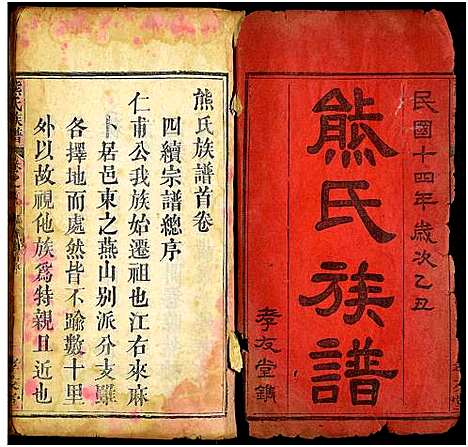 民國十四年歲次乙丑
熊氏族譜
孝友堂鐫
熊氏族譜首卷
四續宗譜總序
仁甫公我族始遷祖也江右來麻
卜居邑東之燕山別派分支雖
各擇地而處然皆不踰數十里
外以故視他族爲特親且近也